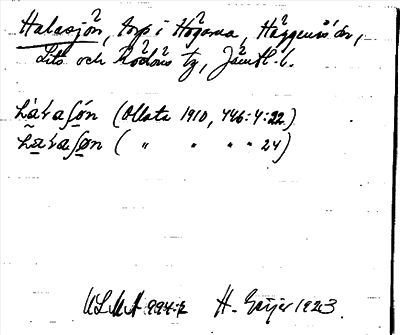 Halasjön, torp i Högarna, Häggenås sn,
Lits och Rödöns tg, Jämtl. l.
(Ollata 1910, 446:4:22)
( " " " " 24)
ULMA 994:2 H. Geijer 1923.